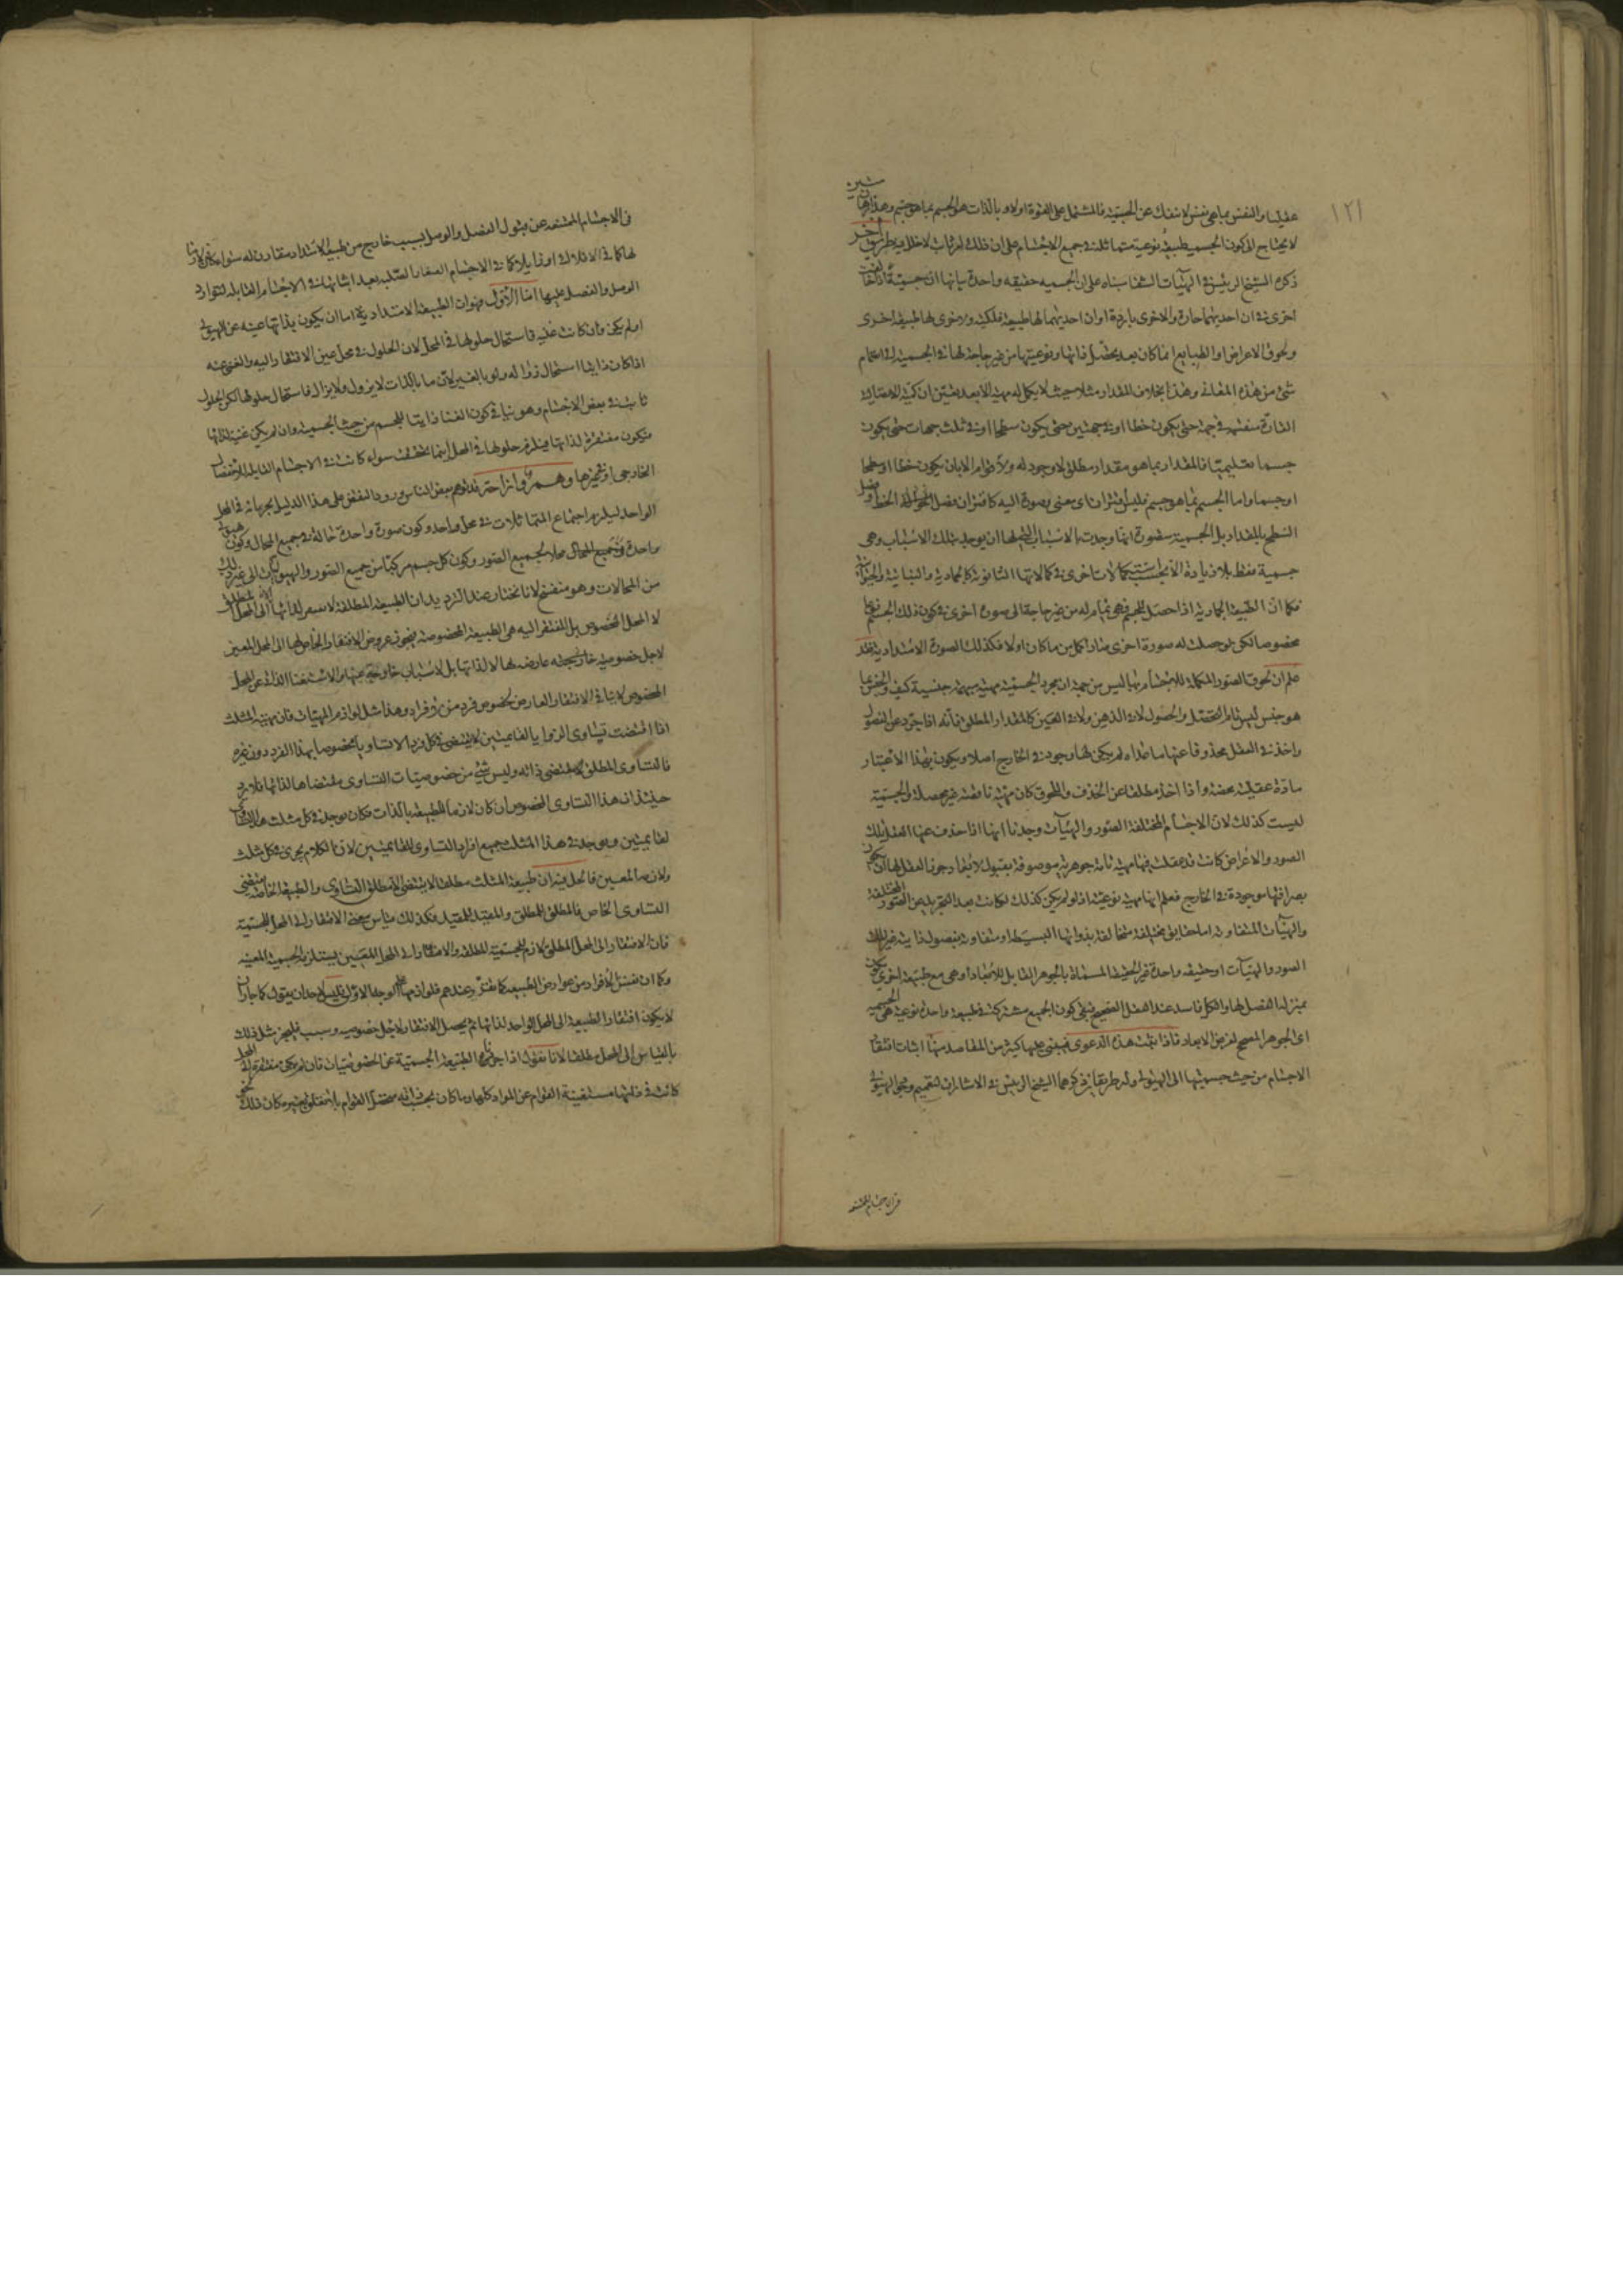 ١٢١
عقليا والنفس بما هى نفس لا تنفك عن الجسمية فالمشتمل على القوة اولا وبالذات هو الجسم بما هو جسم وهذا البرهان
لا يحتاج الى كون الجسم طبيعة نوعية متماثلة فى جميع الاجسام على ان ذلك امر ثابت لا خلل فيه طريق اخر
ذكره الشيخ الرئيس فى الهيات الشفا بناه على ان الجسميه حقيقه واحدة بيانها ان جسمية اذا خالفت
اخرى فى ان احديهما حارة والاخرى باردة او ان احديهما لها طبيعة فلكية والاخرى لها طبيعة اخرى
ولحوق الاعراض او الطبايع انما كان بعد تحصل ذاتها ونوعيتها من غير حاجة لها فى الجسمية الى انضمام
شئ من هذه المعانى وهذا بخلاف المقدار مثلا حيث لا يكمل له مهية الا بعد
القارة منقسمة فى جهة حتى يكون خطا او فى جهتين حتى يكون سطحا او فى ثلث جهات حتى يكون
جسما تعليميا فالمقدار بما هو مقدار مطلق لا وجود له ولا قوام الا بان يكون خطا او سطحا
او جسما واما الجسم بما هو جسم فليس اقتران اى معنى بصورة اليه كاقتران فصل الخط او فصل
السطح بالمقدار بل الجسمية متصورة انها وجدت بالاسباب التى لها ان يوجد بتلك الاسباب وهى
جسمية فقط بلا زيادة الا بحسب كمالات اخرى فى كمالاتها الثانوية كالجمادية والنباتية والحيوانية
فكما ان الطبيعة الجمادية اذا حصل للجسم فهى تمام له من غير حاجة الى صورة اخرى فى كون ذلك الجسم نوعا
مخصوصا لكن لو حصلت له صورة اخرى صار اكمل من ما كان اولا فكذلك الصورة الامتدادية فقد
علم ان لحوق الصور المكملة للاجسام بها ليس من جهة ان مجرد الجسمية مهية مبهمة جنسية كيف والجنس بما
هو جنس ليس تام التحصل والحصول لا فى الذهن ولا فى العين كالمقدار المطلق فانه اذا جرد عن الفصول
واخذ فى العقل محذوفا عنها ما عداه لم يكن لها وجود فى الخارج اصلا ويكون بهذا الاعتبار
مادة عقلية محضة واذا اخذ مطلقا عن الحذف واللحوق كان مهية ناقصة غير محصلة والجسمية
ليست كذلك لان الاجسام المختلفة الصور والهيآت وجدنا انها اذا حذف عنها العقل تلك
الصور والاعراض كانت قد عقلت فيها مهية تامة جوهرية موصوفة بقبول الابعاد جوز العقل لها ان يكون
بصرافتها موجودة فى الخارج فعلم انها مهية نوعية اذ لو لم يكن كذلك لكانت بعد التجريد عن الصور المختلفة
والهيآت المتفاوتة اما حقايق مختلفة متخالفة بذواتها البسيطة او متفاوتة بفصول ذاتية غير تلك
الصور والهيآت او حقيقه واحدة غير الحقيقة المسماة بالجوهر القابل للابعاد او هى مع طبيعة اخرى يكون
بمنزلة الفصل لها والكل فاسد عند العقل الصحيح فبقى كون الجميع مشتركة فى طبيعة واحدة نوعية هى الجسمية
اى الجوهر المصحح لفرض الابعاد فاذا ثبت هذه الدعوى فيبتنى عليها كثير من المقاصد منها اثبات افتقار
الاجسام من حيث جسميتها الى الهيولى وله طريقان ذكرهما الشيخ الرئيس فى الاشارات لتعميم وجود الهيولى
فى الاجسام الممتنعه
فى الاجسام الممتنعه عن قبول الفصل والوصل بسبب خارج عن طبيعة الامتداد مقارن له سواء كان لازما
لها كما فى الافلاك او زايلا كما فى الاجسام الصغار الصلبه بعد اثباتها فى الاجسام القابله لتوارد
الوصل والفصل عليها اما الاول فهو ان الطبيعة الامتدادية اما ان يكون بذاتها غنيه عن الهيولى
او لم يكن فان كانت غنيه فاستحال حلولها فى المحل لان الحلول فى محل عين الافتقار اليه والغنى عنه
اذا كان ذاتيا استحال زواله ولو بالغير لان ما بالذات لا يزول ولا يزال فاستحال حلولها لكن الحلول
ثابت فى بعض الاجسام وهو ينافى كون الغنا ذاتيا للجسم من حيث الجسمية وان لم يكن غنية لذاتها
فيكون مفتقرة لذاتها فيلزم حلولها فى المحل اينما تحققت سواء كانت فى الاجسام القابلة للانفصال
الخارجى او غيرها وهم وازاحة قد توهم بعض الناس ورود النقض على هذا الدليل بجريانه فى المحل
الواحد ليلزم اجتماع المتماثلات فى محل واحد وكون صورة واحدة حالة فى جميع المحال وكون هيولى
واحدة فى جميع المحال محلا لجميع الصور وكون كل جسم مركبا من جميع الصور والهيوليات الى غير ذلك
من المحالات وهو منفسخ لانا نختار عند الترديد ان الطبيعة المطلقة لا تفتقر لذاتها الا الى المحل المطلق
لا المحل المخصوص بل المفتقر اليه هى الطبيعة المخصوصة فيجوز عروض الافتقار الخاص لها الى المحل المعين
لاجل خصوصية خارجية عارضة لها لا لذاتها بل لاسباب خارجة عنها والاستغنا الذاتى عن المحل
المخصوص لا ينافى الافتقار العارض لخصوص فرد من افراده وهذا مثل لوازم المهيات فان مهية المثلث
اذا اقتضت تساوى الزوايا لقايمتين لا يقتضى فى كل فرد الا تساويا مخصوصا بهذا الفرد دون غيره
فالتساوى المطلق مقتضى ذاته وليس شئ من خصوصيات التساوى مقتضاها لذاتها فلا يرد
حينئذ ان هذا التساوى المخصوص ان كان لازما للطبيعة بالذات فكان يوجد فى كل مثلث هذا التساوى
لقايمتين ويوجد فى هذا المثلث جميع افراد التساوى للقايمتين لان الكلام يجرى فى كل مثلث
ولازمه المعين فالحل فيه ان طبيعة المثلث مطلقا لا يقتضى الا مطلق التساوى والطبيعة الخاصة يقتضى
التساوى الخاص فالمطلق للمطلق والمقيد للمقيد فكذلك قياس معنى الافتقار الى المحل للجسمية
فان الافتقار الى المحل المطلق لازم للجسمية المطلقة والافتقار الى المحل المعين يستلزمه الجسمية المعينه
وكما ان نفس الافراد من عوارض الطبيعة كما تقرر عندهم فلوازمها على الوجه الاولى فليس لاحد ان يقول كما جاز ان
لا يكون افتقار الطبيعة الى المحل الواحد لذاتها ثم يحصل الافتقار لاجل خصوصيه وسبب فليجز مثل ذلك
بالقياس الى المحل مطلقا لانا نقول اذا جردنا الطبيعة الجسمية عن الخصوصيات فان لم يكن مفتقرة الى المحل
كانت فى ذاتها مستغنية القوام عن المواد كلها وما كان بحسب ذاته مستقل القوام